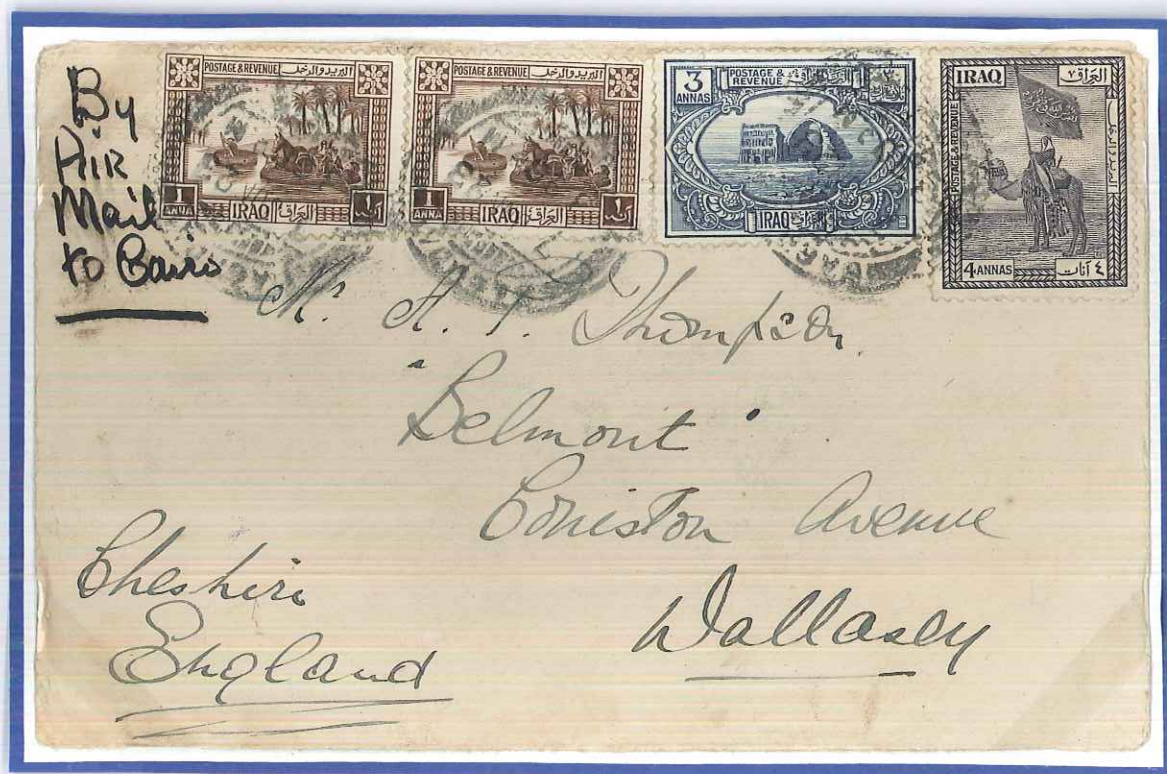 By
AIR
Mail
to Cairo
POSTAGE & REVENUE البريد والدخل
1 ANNA IRAQ العراق
POSTAGE & REVENUE البريد والدخل
1 ANNA IRAQ العراق
3 ANNAS POSTAGE & REVENUE
IRAQ العراق
IRAQ العراق
POSTAGE & REVENUE
4 ANNAS ٤ آنات
Mr A. T. Thompson.
"Belmont"
Coniston Avenue
Wallasey
Cheshire
England